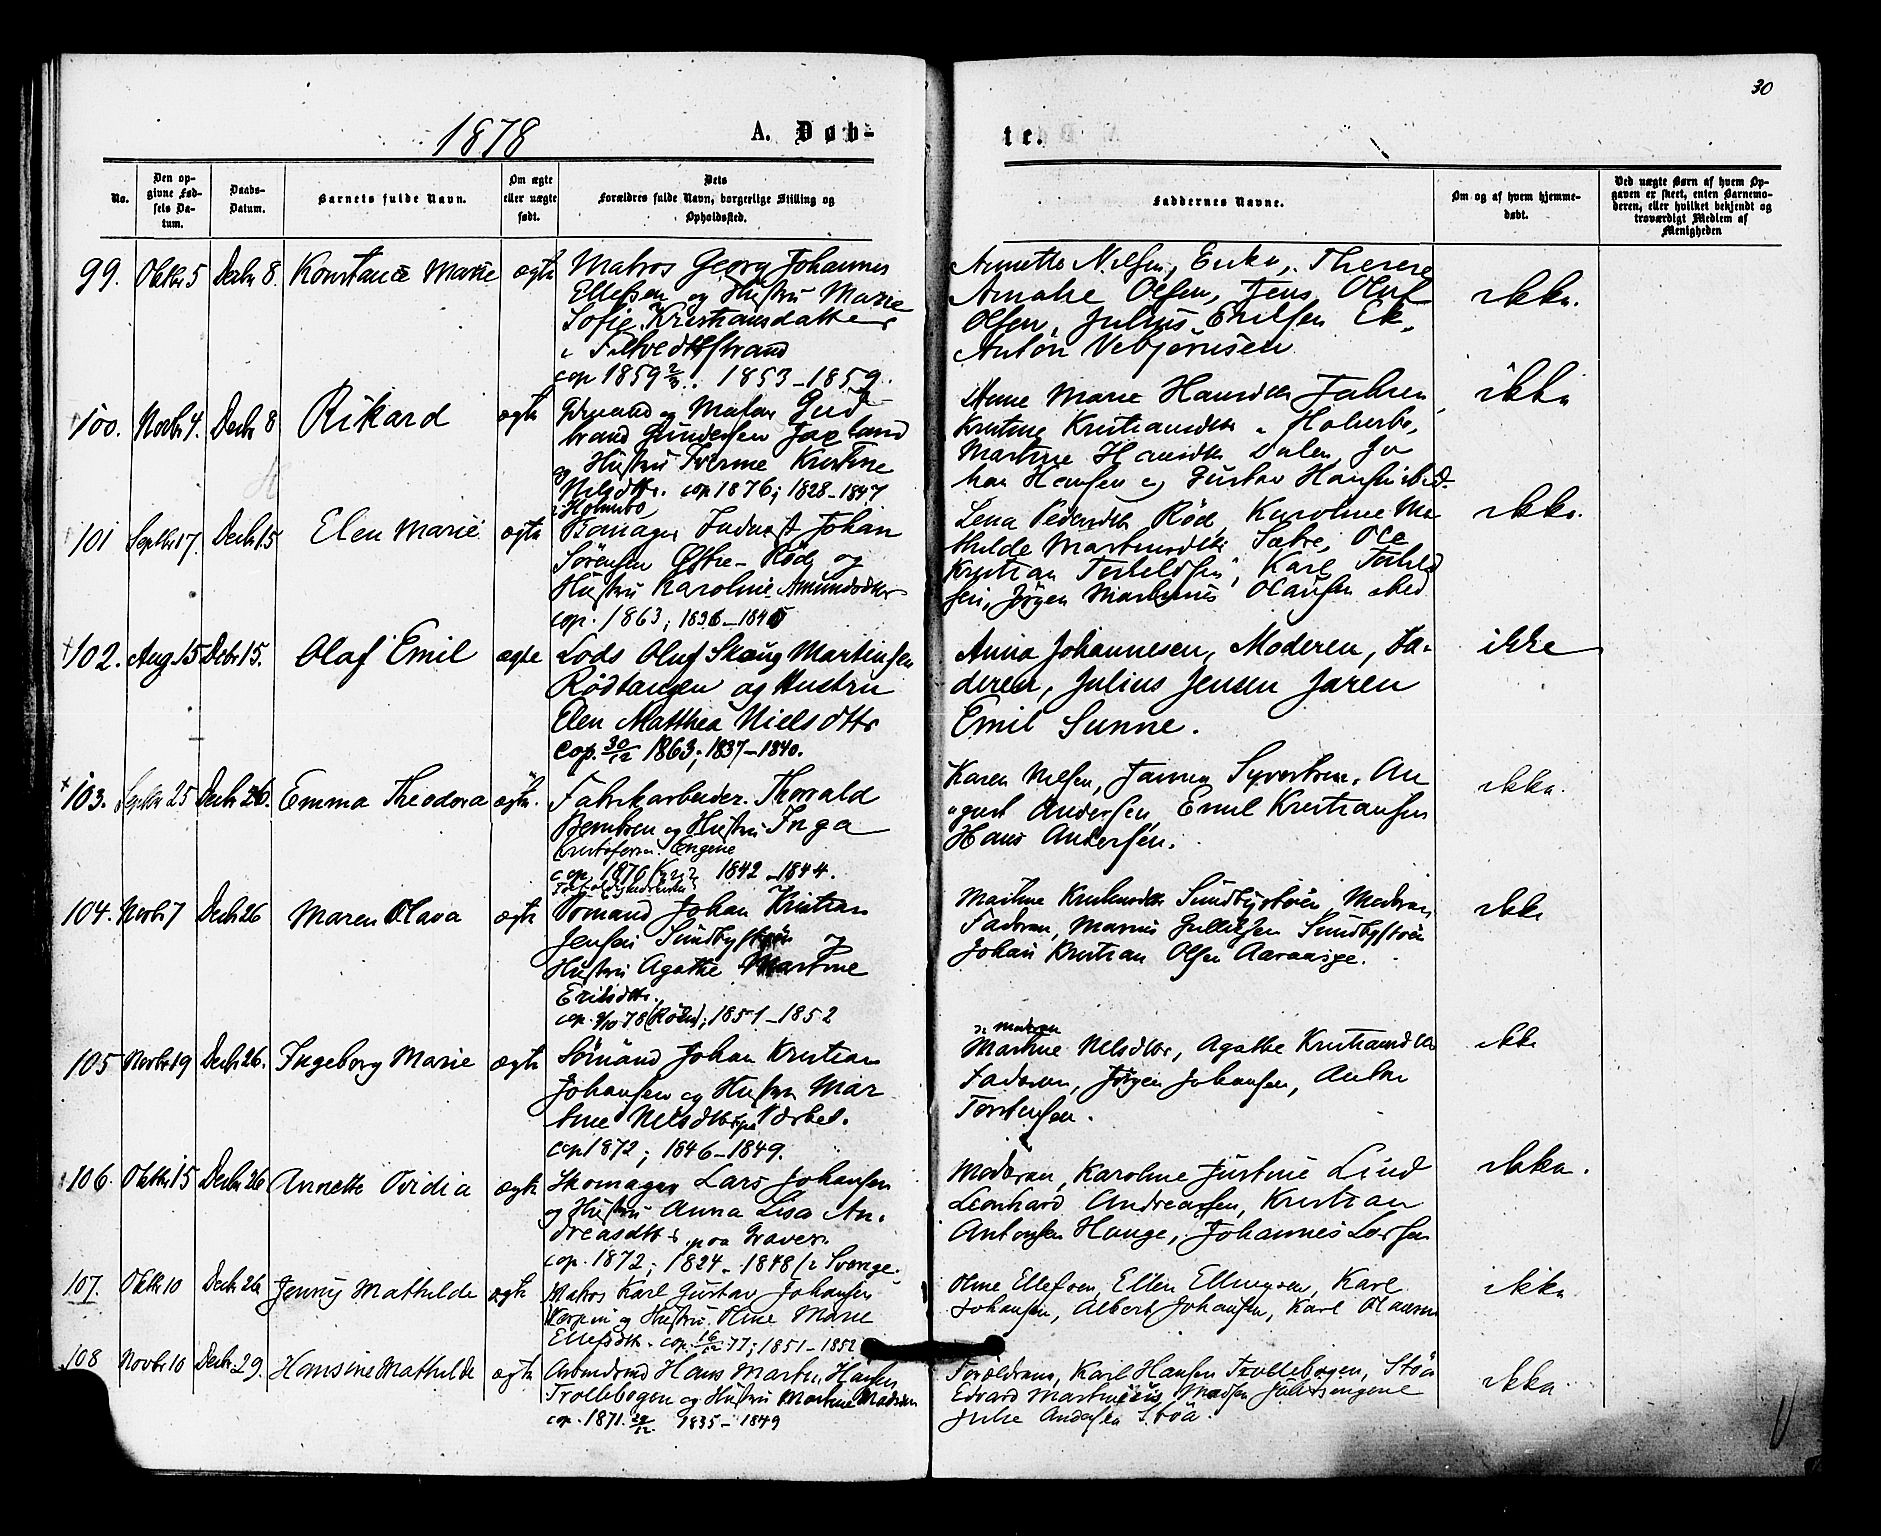 30
1878
A. Døb-
te.
No.
Den op-
givne Fød-
sels Da-
tum.
Daabs-
Datum.
Barnets fulde Navn.
Om ægte
eller uægte
født.
Dets
Forældres fulde Navn, borgerlige Stilling og
Opholdssted.
Faddernes Navne.
Om og af hvem hjemme-
døbt.
Ved uægte Børn af hvem Op-
gaven er skeet, enten Barnemo-
deren, eller hvilket bekjendt og
troværdigt Medlem af
Menigheden
99. Oktbr 5 Decbr 8. Konstance Marie ægte
Matros Georg Johannes
Ellefsen og Hustru Marie
Sofie Kristiansdatter
i Filtvedtstrand
cop 1859 2/3. 1853-1859.
Annette Nilsen, Therese
Amalie Olsen, Jens Oluf
Olsen, Julius Erilsen Ek,
Anton Vebjørnsen
ikke.
100. Novbr 4. Decbr 8 Rikard ægte
Gdmand og Gud-
brand Gundersen
og Hustru Kristine
Nilsdtr. cop 1876; 1828-1847
i Holmsbo
Anne Marie Hansdtr
Kristine Kristiansdtr i Holmsbo,
Martine Hansdtr Dalen, Jo
han Hansen og Gustav Hansen ibid.
ikke
101 Septbr 17. Decbr 15 Elen Marie ægte
Johan
Sørensen Østre-Rød og
Hustru Karoline Amundsdtr
cop. 1863; 1836-1840
Lena Pedersdtr Rød, Karoline Ma
thilde Martinsdtr Sætre, Ole
Kristian Terkeldsen, Karl Terkeld
sen, Jørgen Martinius Olausen ibid
ikke.
102. Aug 15 Debr 15. Olaf Emil ægte
Lods Oluf Skaug Martinsen
Rødtangen og Hustru
Elen Matthea Nielsdttr
cop. 30/12 1863; 1837-1840.
Anna Johannesen, Moderen, Fa-
deren, Julius Jensen Jaren
Emil Sunne.
ikke
103. Septbr 25 Decbr 26. Emma Theodora ægte.
Fabrikarbeider Thorvald
Berntsen og Hustru Inga
Kristofersen Engene
cop. 1876 1842-1844.
Karen Nilsen, Syvertsen, Au
gust Andersen, Emil Kristiansen
Hans Andersen.
ikke.
104. Novbr 7 Decbr 26 Maren Olava ægte
Sømand Johan Kristian
Jensen Sundby og
Hustru Agathe Martine
Erilsdtr.
cop. 9/10 78 (Røken); 1851-1852
Martine Knutsdtr Moderen
Faderen, Marius Gulliksen
Johan Kristian Olsen
ikke
105 Novbr 19 Decbr 26. Ingeborg Marie ægte
Sømand Johan Kristian
Johansen og Hustru Mar
tine Nilsdtr paa
cop 1872; 1846-1849.
moderen
Martine Nilsdtr, Agathe Kristiansdtr
Faderen, Jørgen Johansen, Anton
Torstensen.
ikke
106. Oktbr 15 Decbr 26 Annette Ovidia ægte
Skomager Lars Johansen
og Hustru Anna Lisa An-
dreasdttr paa Graver
cop. 1872; 1824-1848 / i Sverige.
Moderen, Karoline Justine Lind
Leonhard Andreassen, Kristian
Antonsen Hauge, Johannes Larsen
ikke.
107. Oktbr 10 Decbr 26 Jenny Mathilde ægte
Matros Karl Gustav Johansen
og Hustru Oline Marie
Ellefsdtr. cop. 16/12 77; 1851-1852
Oline Ellefsen, Ellen Ellingsen, Karl
Johansen, Albert Johansen, Karl Olausen
ikke
108 Novbr 10 Decbr 29. Hansine Mathilde ægte
Hans Martin Hansen
Trollebogen og Hustru Martine Madsen
cop. 1871. 29/12 1835-1849
Forældrene, Karl Hansen Trollebogen, Støa
Edvard Martinius Madsen
Julie Andersen Støa.
ikke